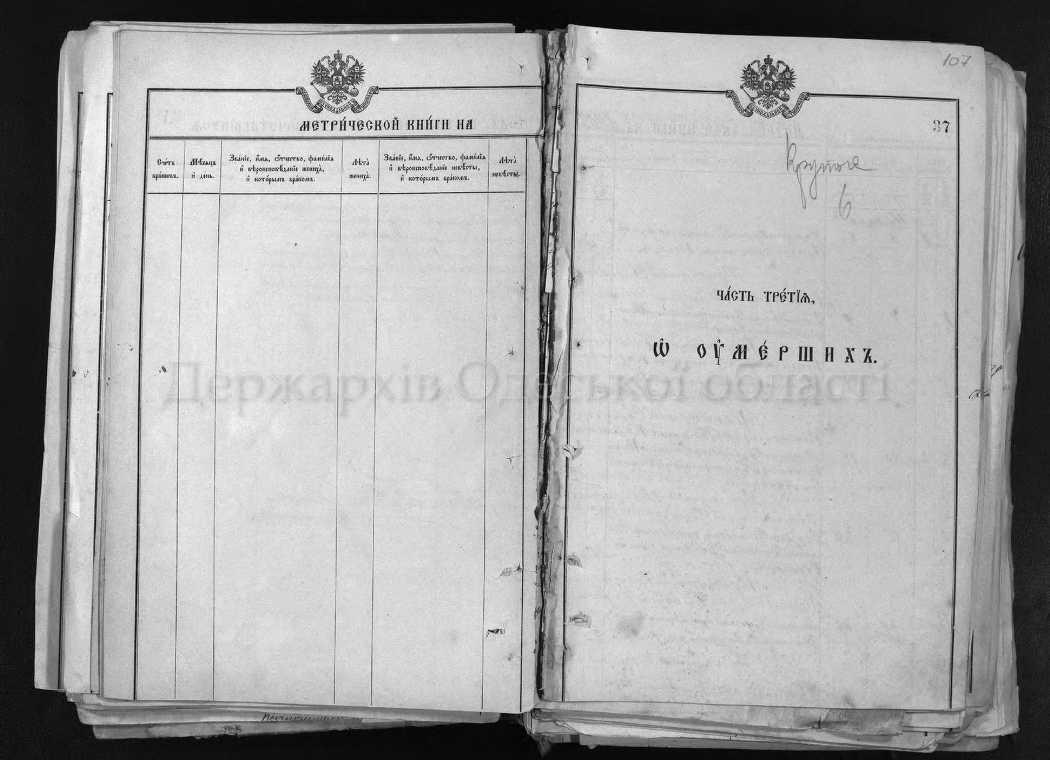 МЕТРИ́ЧЕСКОЙ КНИ́ГИ НА
Сче́тъ
бра́ковъ.
Мѣ́сѧцъ
и҆ день.
Зва́нїе, и҆́мѧ, ѻ҆́тчество, фамѝлїѧ
и҆ вѣроисповѣ́данїе жениха̀,
и҆ кото́рымъ бра́комъ.
Лѣ́та
жениха̀.
Зва́нїе, и҆́мѧ, ѻ҆́тчество, фамѝлїѧ
и҆ вѣроисповѣ́данїе невѣ́сты,
и҆ кото́рымъ бра́комъ.
Лѣ́та
невѣ́сты.
107
37
6
ЧА́СТЬ ТРЕ́ТЇѦ,
Ѡ҆ ОУ҆МЕ́РШИХЪ.
Держархів Одеської області